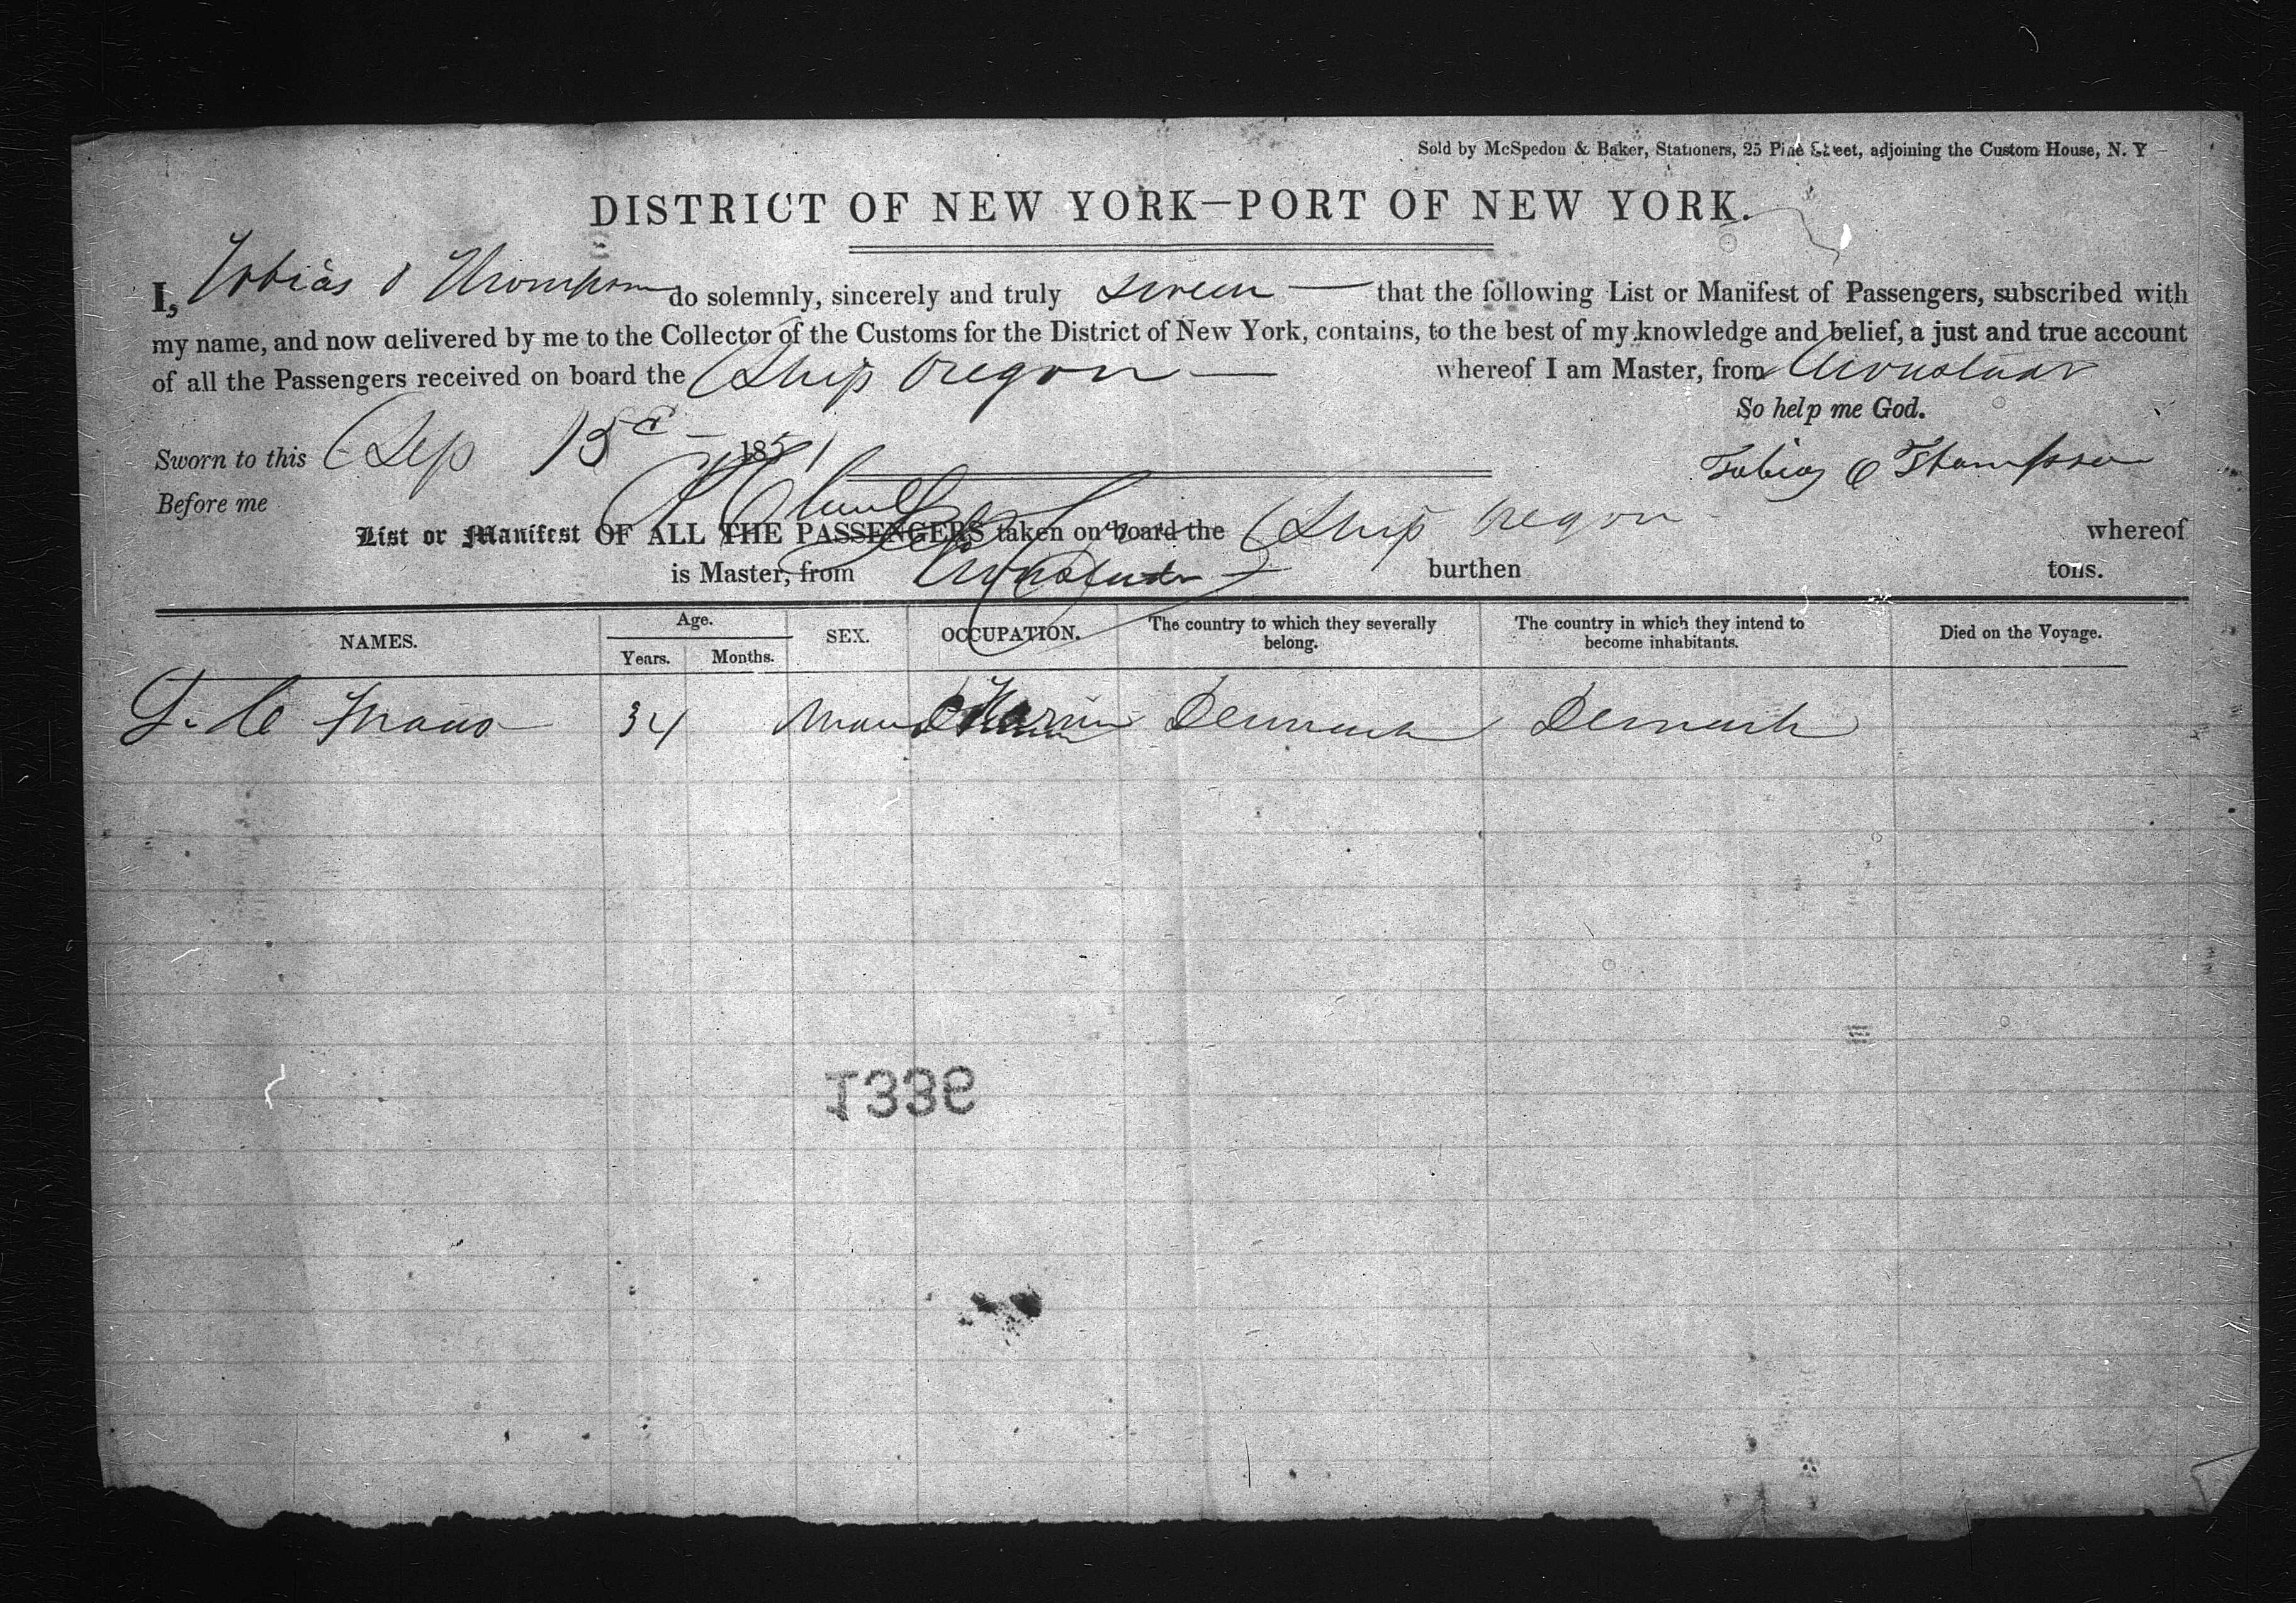 Sold by McSpedon & Baker, Stationers, 25 Pine Street, adjoining the Custom House, N. Y
DISTRICT OF NEW YORK—PORT OF NEW YORK.
I, Tobias O Thompson do solemnly, sincerely and truly swear — that the following List or Manifest of Passengers, subscribed with
my name, and now delivered by me to the Collector of the Customs for the District of New York, contains, to the best of my knowledge and belief, a just and true account
of all the Passengers received on board the Ship Oregon — whereof I am Master, from Cronstadt
So help me God.
Sworn to this Sep 15 1851 Tobias O Thompson
Before me
List or Manifest OF ALL THE PASSENGERS taken on board the Ship Oregon whereof
is Master, from Cronstadt burthen tons.
NAMES. Age. Years. Months. SEX. OCCUPATION. The country to which they severally belong. The country in which they intend to become inhabitants. Died on the Voyage.
34 Man Denmark Denmark
1336